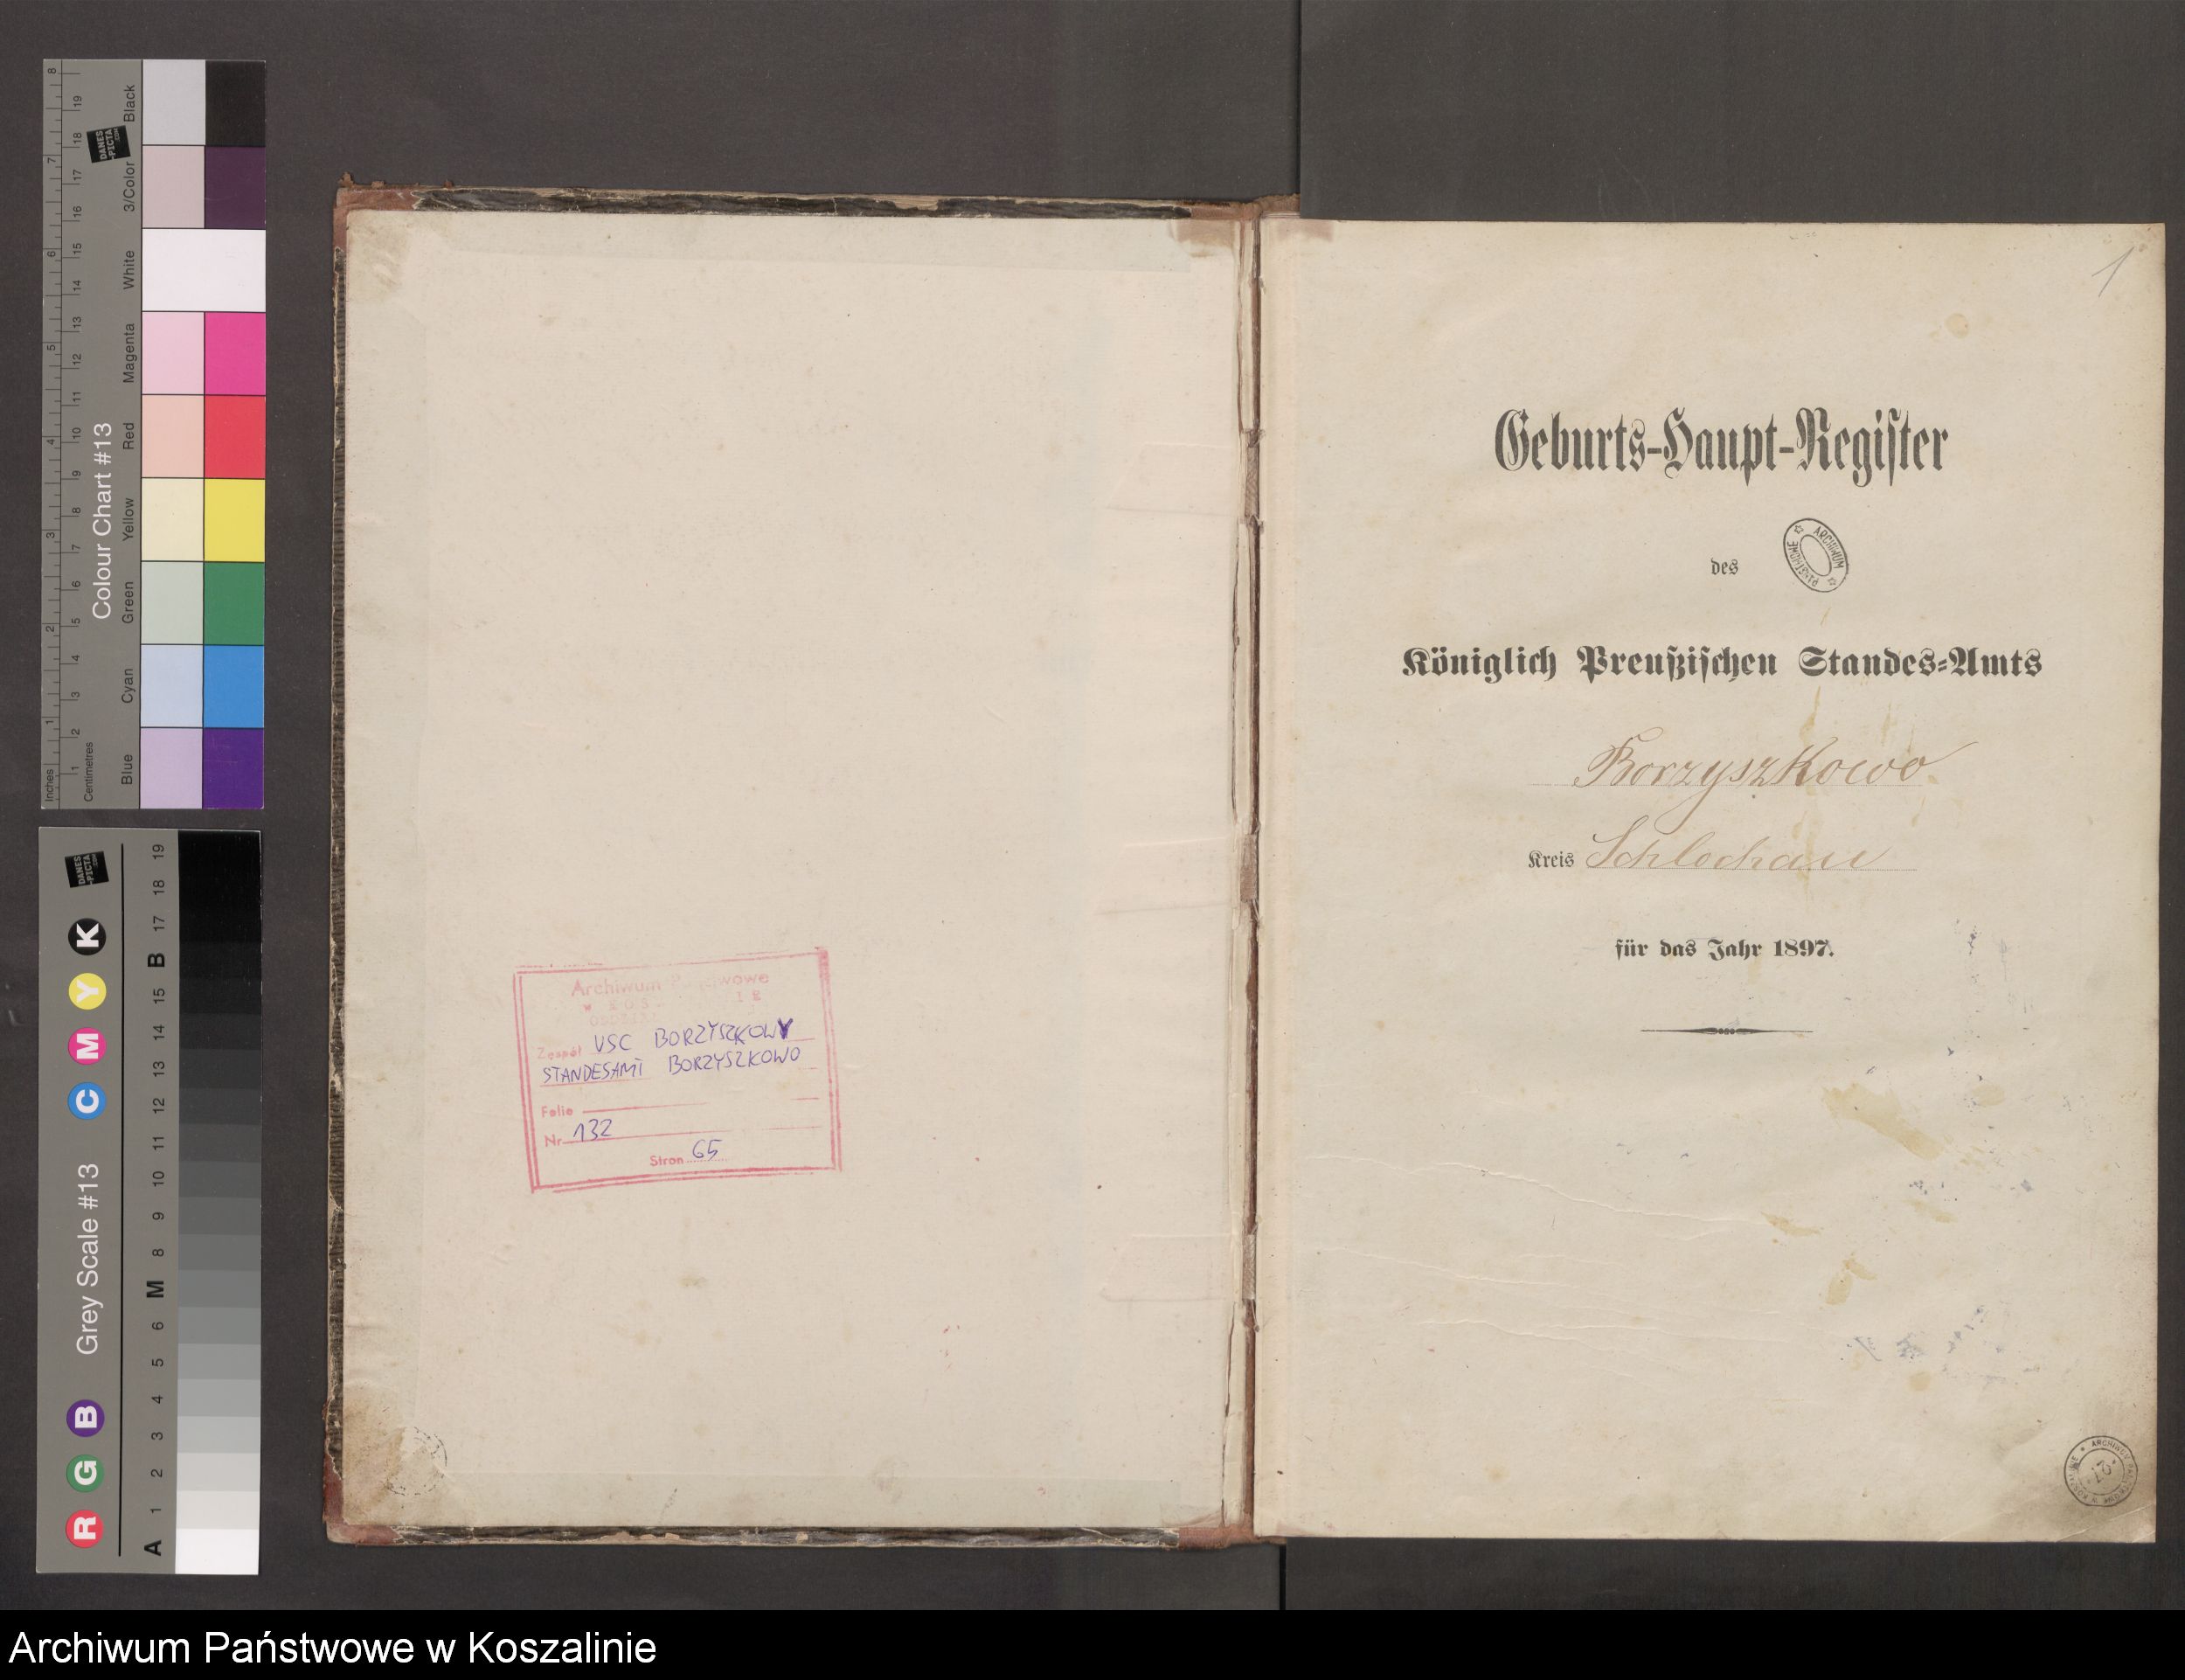 Colour Chart #13
Inches
Centimetres
Blue
Cyan
Green
Yellow
Red
Magenta
White
3/Color
Black
DANES
-PICTA
.COM
Grey Scale #13
R G B C M Y K
A 1 2 3 4 5 6 M 8 9 10 11 12 13 14 15 B 17 18 19
DANES
-PICTA
.COM
Archiwum Państwowe
Zespół USC BORZYSZKOWY
STANDESAMT BORZYSZKOWO
Folio
Nr 132
Stron 65
1
Geburts-Haupt-Regiſter
des
ARCHIWUM PAŃSTWOWE
Königlich Preußiſchen Standes-Amts
Borzyszkowo
Kreis Schlochau
für das Jahr 1897.
Archiwum Państwowe w Koszalinie